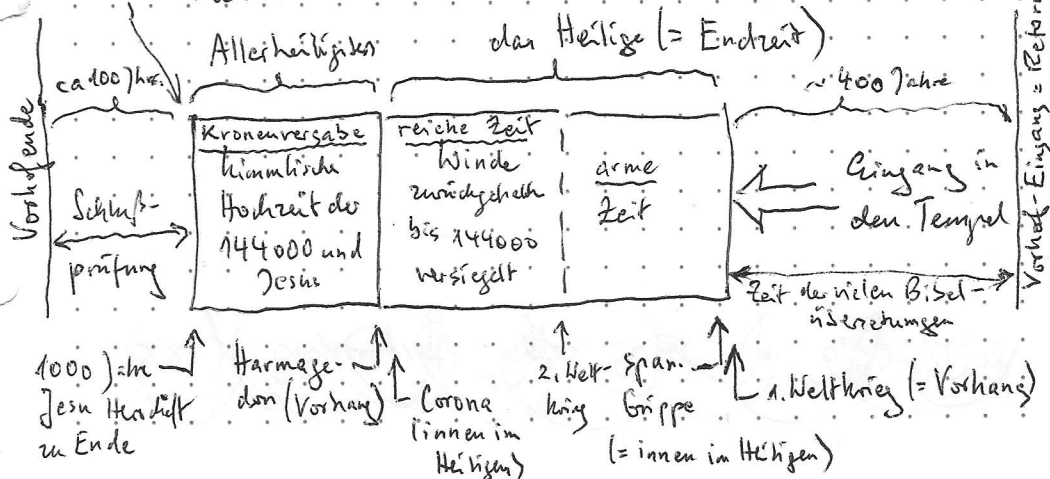 Allerheiligstes
das Heilige (= Endzeit)
ca 100 Jhr.
~ 400 Jahre
Vorhofende
Schluß-
prüfung
Kronenvergabe
himmlische
Hochzeit der
144000 und
Jesus
reiche Zeit
Winde
zurückgehalten
bis 144000
versiegelt
arme
Zeit
Eingang in
den Tempel
Zeit der vielen Bibel-
übersetzungen
Vorhof-Eingang =
1000 Jahre
Jesu Herrschaft
zu Ende
Harmage-
don (Vorhang)
Corona
(innen im
Heiligen)
2. Welt-
krieg
Span.
Grippe
(= innen im Heiligen)
1. Weltkrieg (= Vorhang)